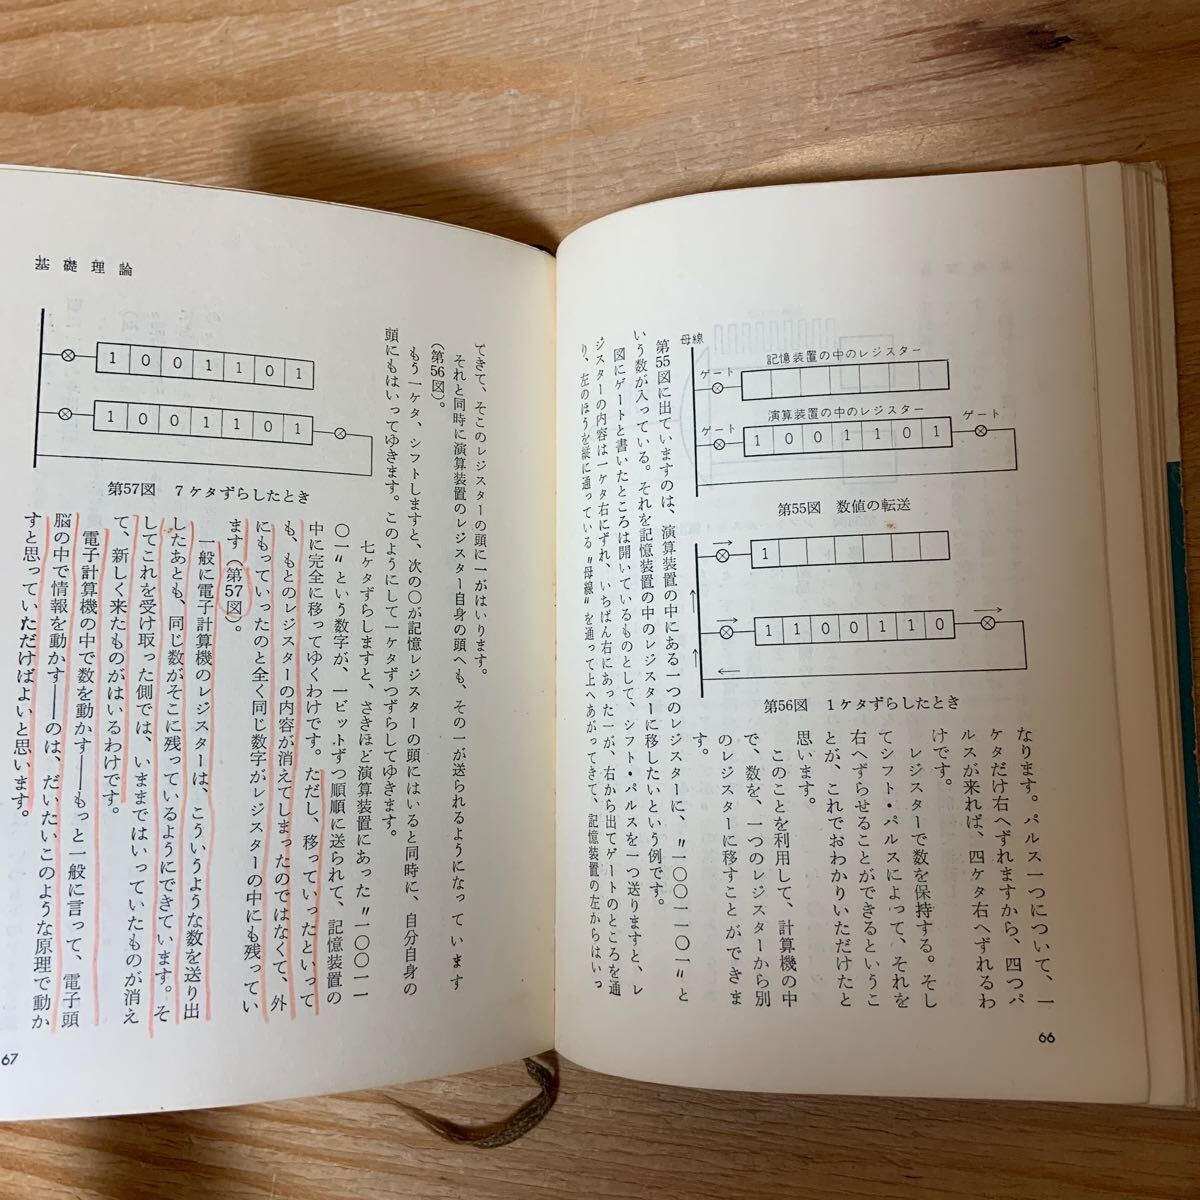 母線
ゲート
記憶装置の中のレジスター
ゲート
演算装置の中のレジスター
ゲート
1 0 0 1 1 0 1
第55図 数値の転送
1
1 1 0 0 1 1 0
第56図 1ケタずらしたとき
なります。パルス一つについて、一
ケタだけ右へずれますから、四つパ
ルスが来れば、四ケタ右へずれるわ
けです。
レジスターで数を保持する。そし
てシフト・パルスによって、それを
右へずらせることができるというこ
とが、これでおわかりいただけたと
思います。
このことを利用して、計算機の中
で、数を、一つのレジスターから別
のレジスターに移すことができま
す。
第55図に出ていますのは、演算装置の中にある一つのレジスターに、〝一〇〇一一〇一〟と
いう数が入っている。それを記憶装置の中のレジスターに移したいという例です。
図にゲートと書いたところは開いているものとして、シフト・パルスを一つ送りますと、レ
ジスターの内容は一ケタ右にずれ、いちばん右にあった一が、右から出てゲートのところを通
り、左のほうを縦に通っている〝母線〟を通って上へあがってきて、記憶装置の左からはいっ
66
基礎理論
1 0 0 1 1 0 1
1 0 0 1 1 0 1
第57図 7ケタずらしたとき
てきて、そこのレジスターの頭に一がはいります。
それと同時に演算装置のレジスター自身の頭へも、その一が送られるようになっています
(第56図)。
もう一ケタ、シフトしますと、次の〇が記憶レジスターの頭にはいると同時に、自分自身の
頭にもはいってゆきます。このようにして一ケタずつずらしてゆきます。
七ケタずらしますと、さきほど演算装置にあった〝一〇〇一一
〇一〟という数字が、一ビットずつ順順に送られて、記憶装置の
中に完全に移ってゆくわけです。ただし、移っていったといって
も、もとのレジスターの内容が消えてしまったのではなくて、外
にもっていったのと全く同じ数字がレジスターの中にも残ってい
ます(第57図)。
一般に電子計算機のレジスターは、こういうような数を送り出
したあとも、同じ数がそこに残っているようにできています。そ
してこれを受け取った側では、いままではいっていたものが消え
て、新しく来たものがはいるわけです。
電子計算機の中で数を動かす――もっと一般に言って、電子頭
脳の中で情報を動かす――のは、だいたいこのような原理で動か
すと思っていただけばよいと思います。
67